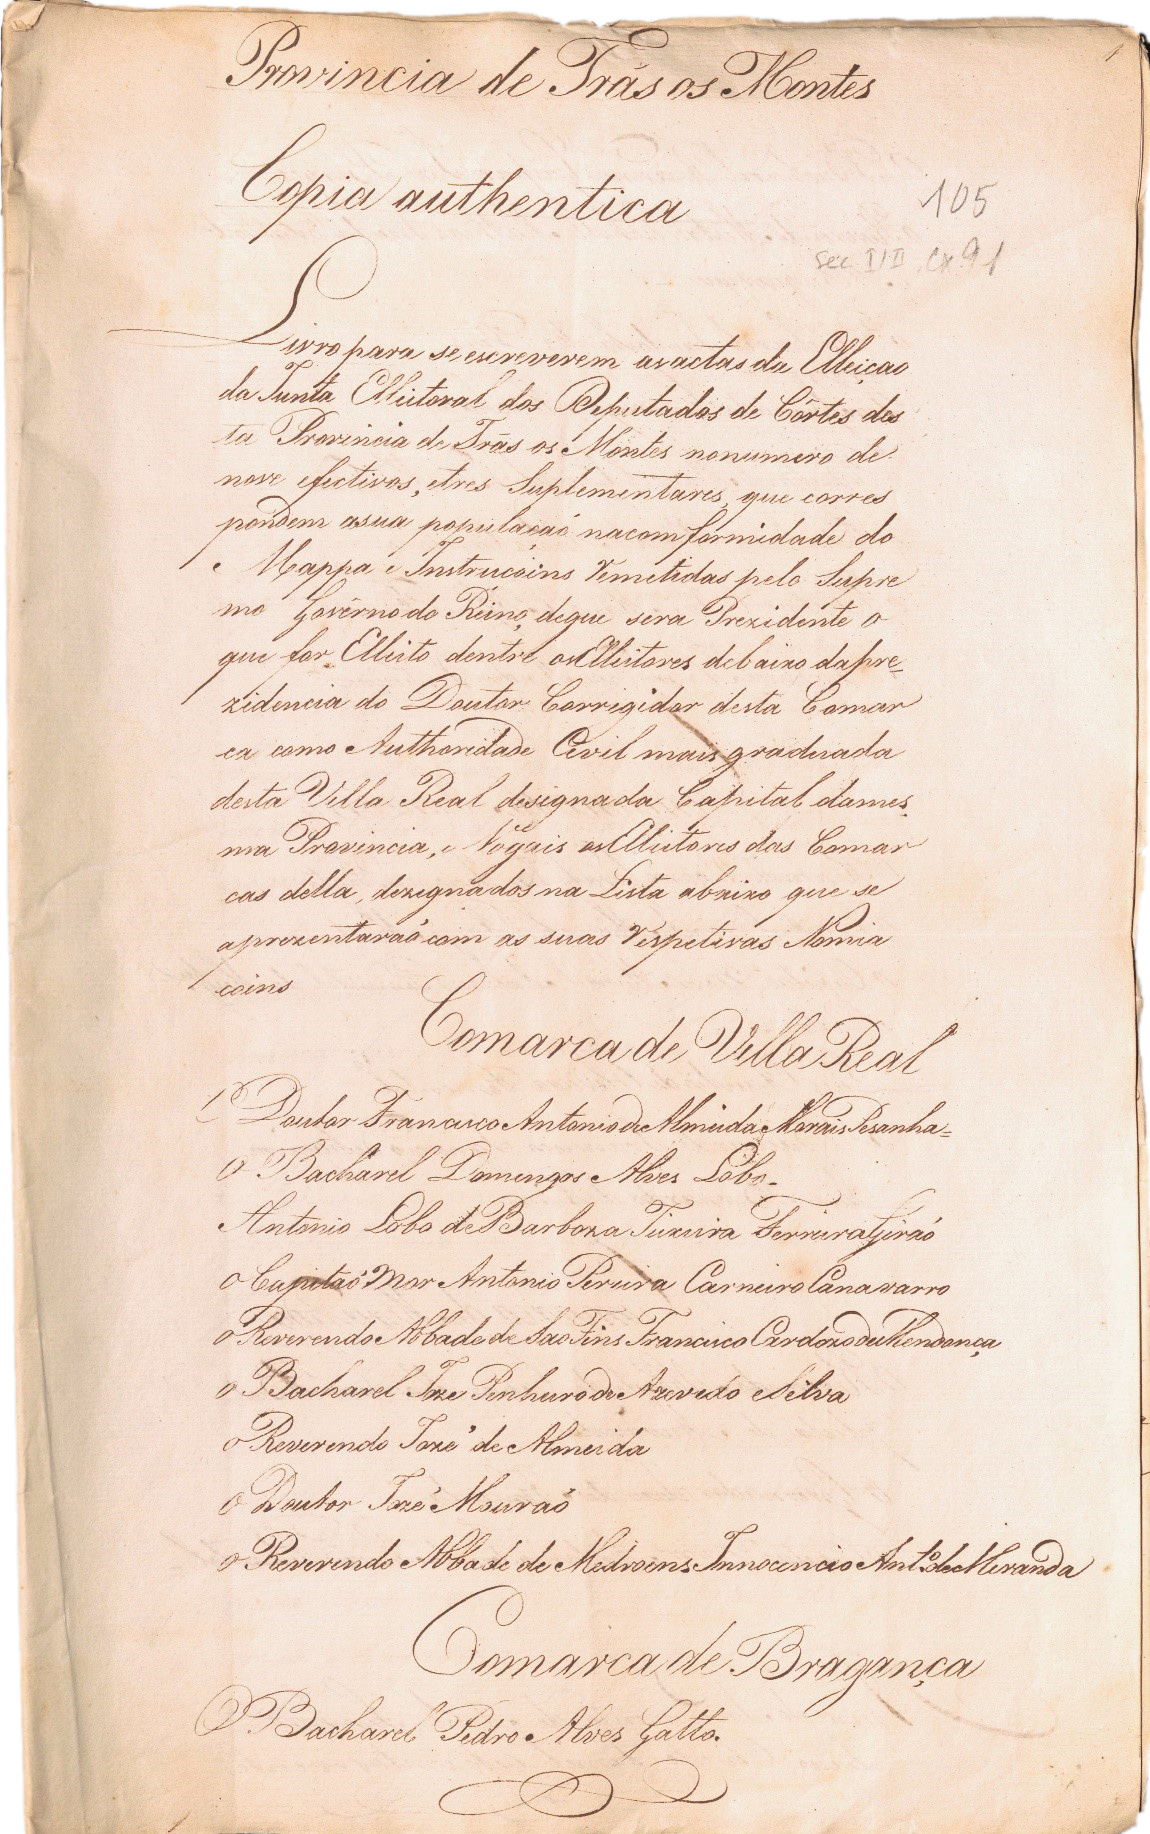 1
Provincia de Trás os Montes
Copia authentica
105
sec I/II cx 91
Livro para se escreverem as actas da Elleiçao
da Junta Elleitoral dos Deputados de Côrtes des
ta Provincia de Trás os Montes no numero de
nove efectivos, e tres Suplementares, que corres
pondem a sua populaçaó na comformidade do
Mappa e Instrucoins remetidas pelo Supre
mo Govêrno do Reino, de que sera Prezidente o
que for Elleito dentre os Elleitores debaixo da pre=
zidencia do Doutor Corrigidor desta Comar
ca como Authoridade Civil mais graduada
desta Villa Real designada Capital da mes
ma Provincia, e Vógais os Elleitores das Comar
cas della, dezegnados na Lista abaixo que se
aprezentaraó com as suas respetivas Nomia
coins
Comarca de Villa Real
Doutor Francisco Antonio de Almeida Morais Pesanha=
O Bacharel Domingos Alves Lobo.
Antonio Lobo de Barboza Teixeira Ferreira Giraó
O Capitaó Mor Antonio Pereira Carneiro Canavarro
O Reverendo Abbade de Sao Fins Francisco Cardozo de Mendonça
O Bacharel Joze Pinheiro de Azevedo e Silva
O Reverendo Jozé de Almeida
O Doutor Jozé Mouraó
O Reverendo Abbade de Medroens Innocencio Ant.º de Miranda
Comarca de Bragança
O Bacharel Pedro Alves Gatto.